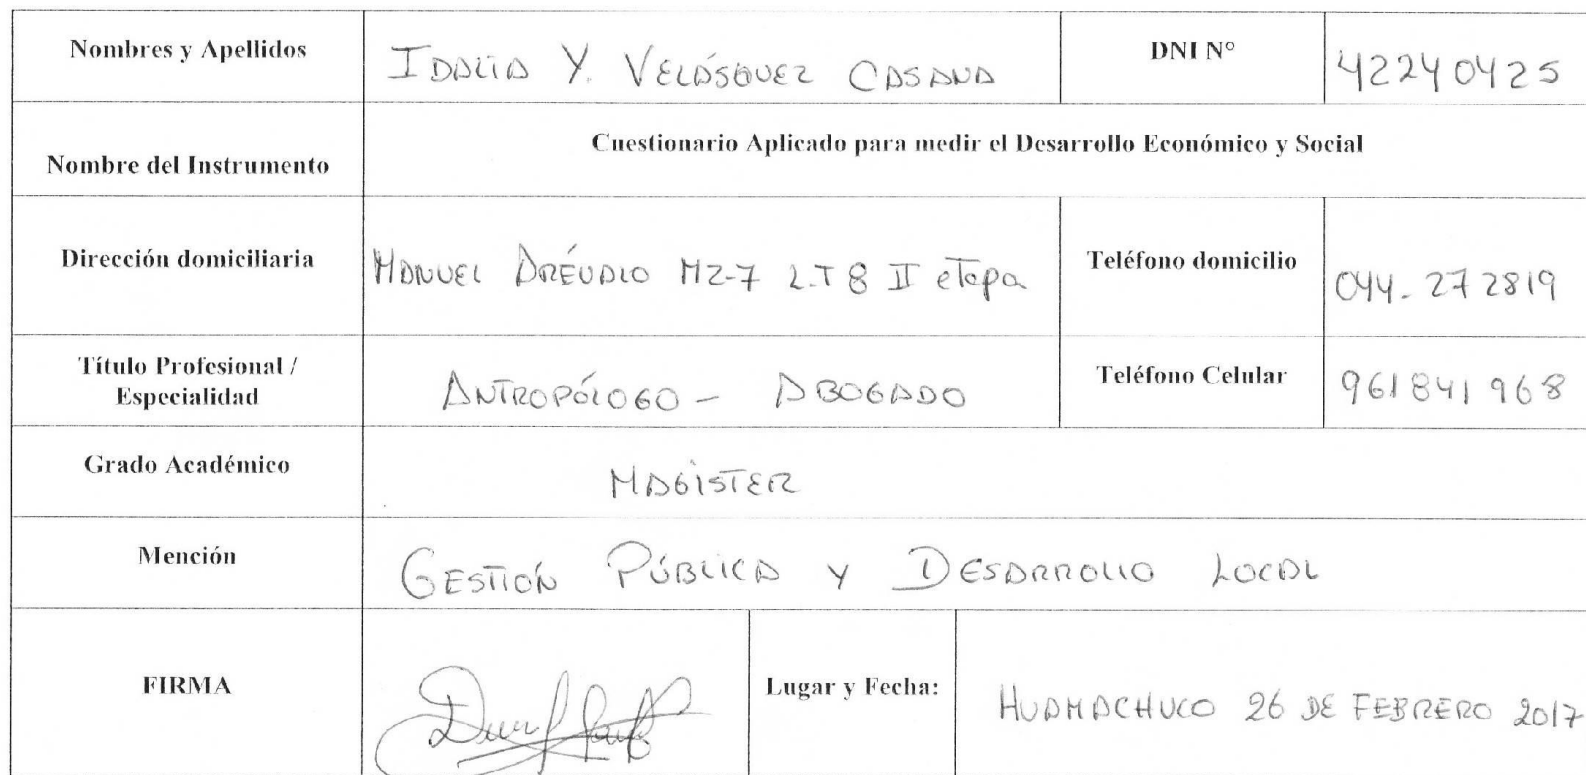 Nombres y Apellidos IDALIA Y. VELÁSQUEZ CASANA DNI N° 42240425
Nombre del Instrumento Cuestionario Aplicado para medir el Desarrollo Económico y Social
Dirección domiciliaria MANUEL ARÉVALO MZ-7 LT 8 II eTapa Teléfono domicilio 044-272819
Título Profesional /
Especialidad ANTROPÓLOGO - ABOGADO Teléfono Celular 961841968
Grado Académico MAGISTER
Mención GESTIÓN PÚBLICA Y DESARROLLO LOCAL
FIRMA Lugar y Fecha: HUAMACHUCO 26 DE FEBRERO 2017